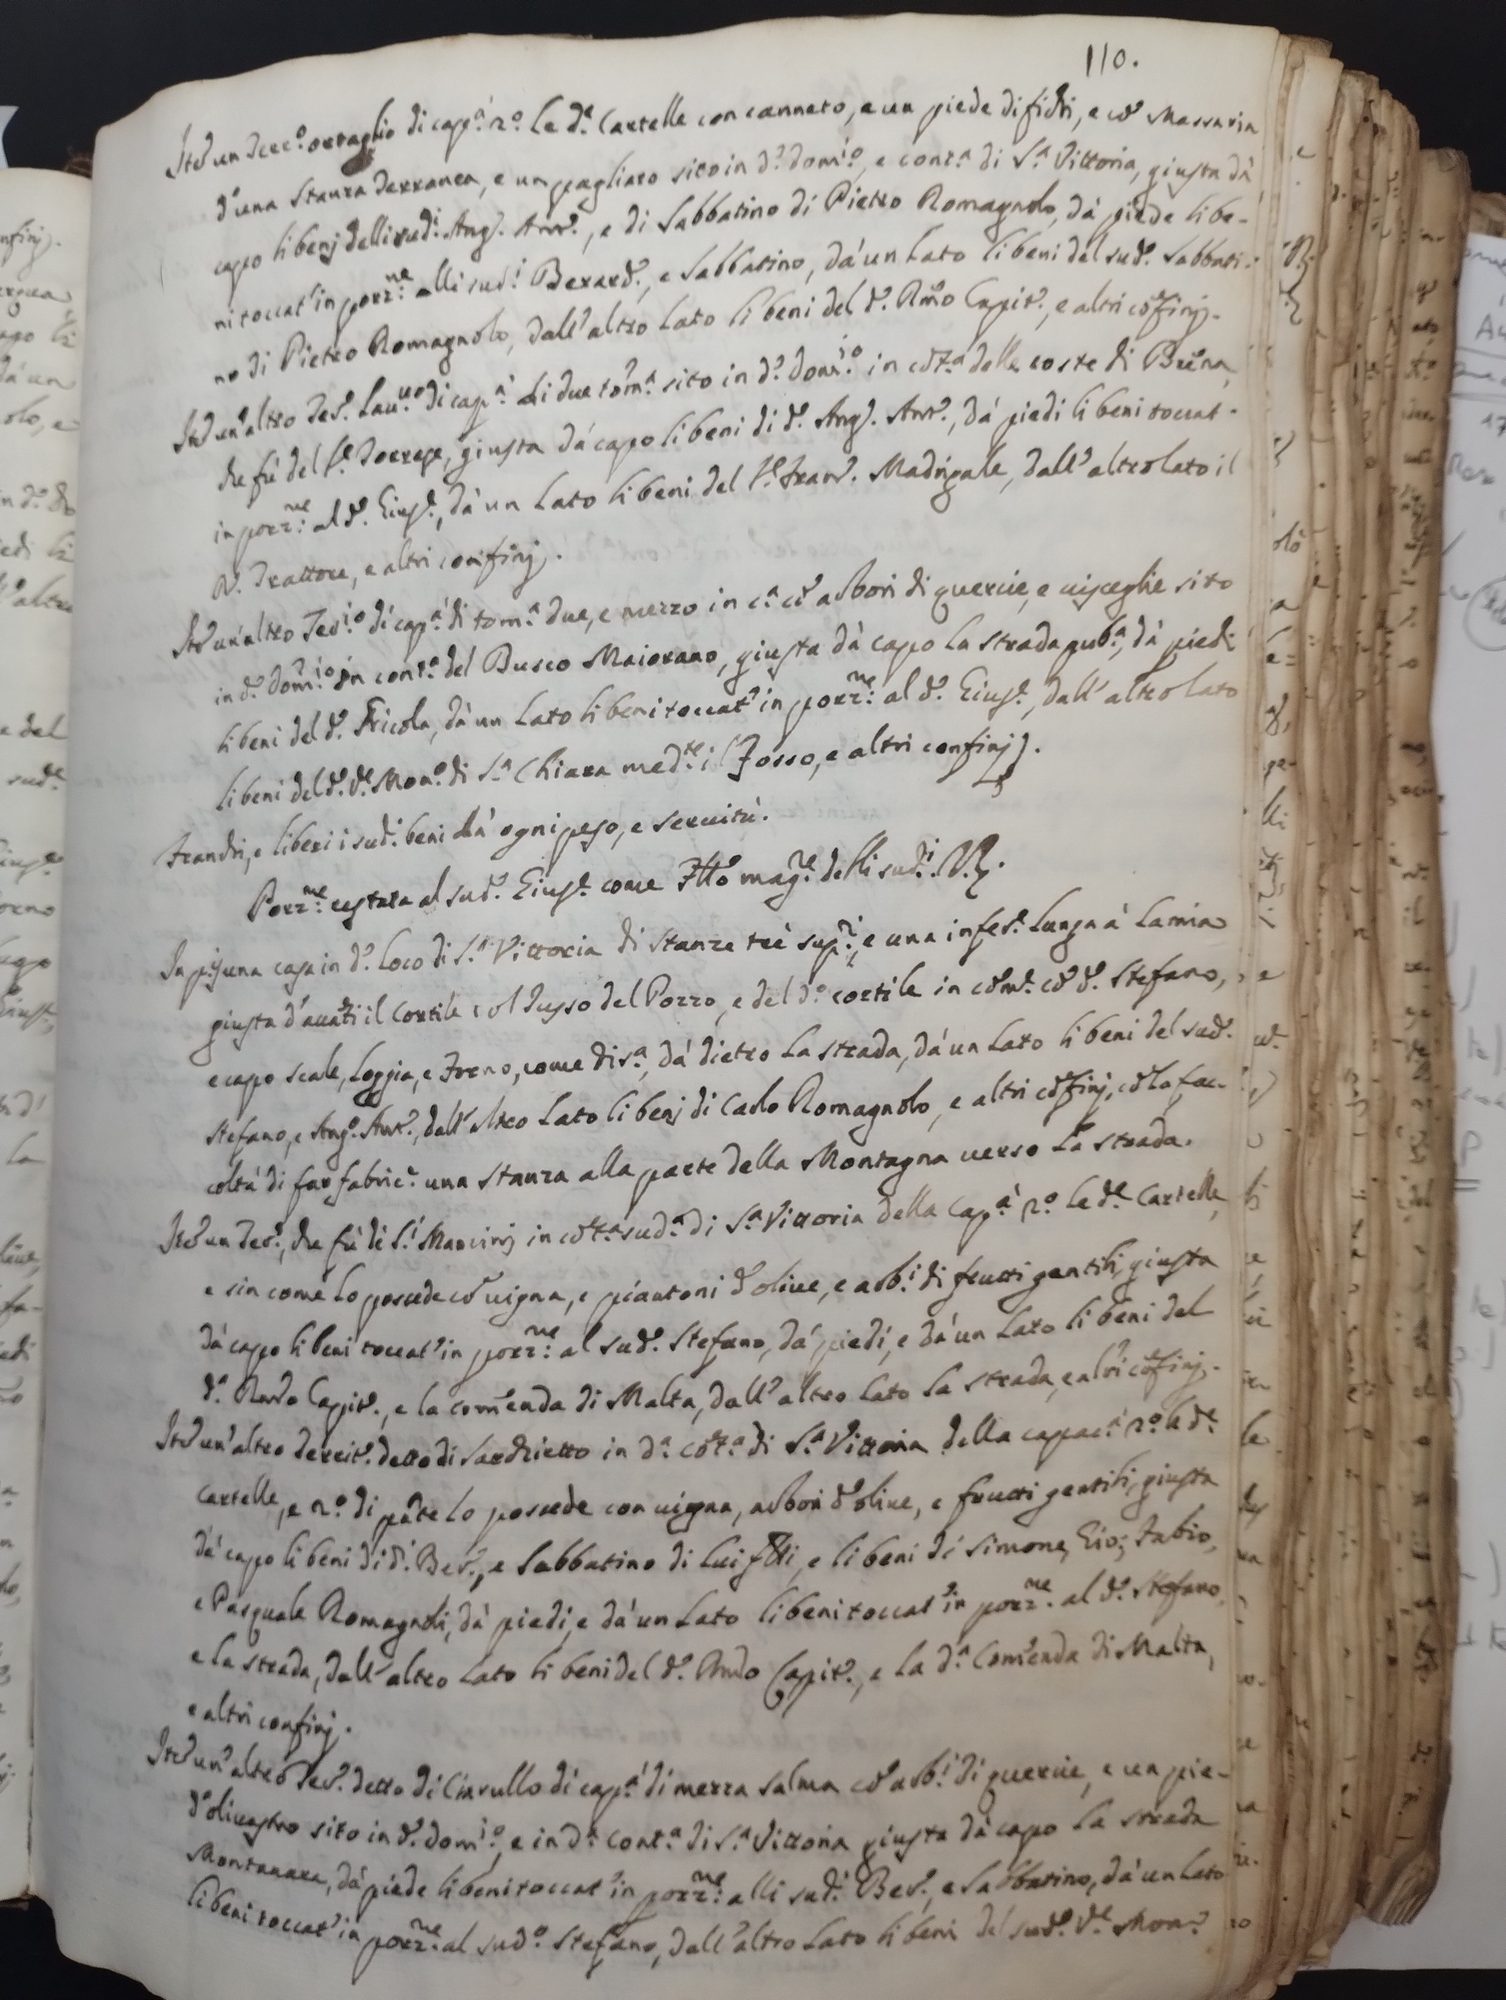 110.
Itē un Terr.º ortaglio di cap.à n.º le d.e Cartelle con canneto, e un piede di fichi, e cō Massaria
d'una Stanza Terranea, e un pagliaro sito in d.º dom.io, e cont.a di S.a Vittoria, giusta dà
capo li benj delli sud.i Ang.º Ant.º, e di Sabbatino di Pietro Romagnolo, dà piede li be-
ni toccat.i in porz.ne alli sud.i Berard.º, e Sabbatino, dà un lato li beni del sud.º Sabbati-
no di Pietro Romagnolo, dall'altro lato li beni del d.º Rmō Capit.º, e altri cōfinj.
Itē un'altro Ter.º lau.vo di cap.à di due tom.a sito in d.º dom.io in cōt.a delle coste di
che fù del S.e Torrese, giusta dà capo li beni di d.º Ang.º Ant.º, dà piedi li beni toccat.i
in porz.ne al d.º Gius.e, dà un lato li beni del S.e Fran.º Madrigale, dall'altro lato il
R.º Trattore, e altri confinj.
Itē un'altro Ter.io di cap.à di tom.a due, e mezzo in c.a cō arbori di quercie, e visceglie sito
in d.º dom.io in cont.a del Busco Maiorano, giusta dà capo la strada pub.a, dà piedi
li beni del d.º Fricola, dà un lato li beni toccat.i in porz.ne al d.º Gius.e, dall'altro lato
li beni del d.º V.e Mon.º di S.a Chiara med.te il Fosso, e altri confinj.
Franchi, e liberi i sud.i beni dà ogni peso, e servitù.
Porz.ne restata al sud.º Gius.e come Fttō mag.re delli sud.i
In p.is una casa in d.º loco di S.a Vittoria di Stanze trè sup.ri, e una infer.e lunga à lamia
giusta d'avanti il Cortile col Jusso del Pozzo, e del d.º cortile in cōm.e cō d.º Stefano,
e capo scale, Loggia, e Forno, come dis.a, dà dietro la strada, dà un lato li beni del sud.º
Stefano, e Ang.º Ant.º, dall'altro lato li benj di Carlo Romagnolo, e altri cōfinj, cō la fac-
coltà di far fabric.e una stanza alla parte della Montagna verso la strada.
Itē un Ter.º, che fù de S.i Mancinj in cōt.a sud.a di S.a Vittoria della cap.à n.º le d.e Cartelle,
e sin come lo possiede cō vigna, e piantoni d'olive, e arb.i di frutti gentili, giusta
dà capo li beni toccat.i in porz.ne al sud.º Stefano, dà piedi, e dà un lato li beni del
d.º Rmdo Capit.º, e la comēnda di Malta, dall'altro lato la strada, e altri cōfinj.
Itē un'altro Territ.º detto di Sardhietto in d.a cōt.a di S.a Vittoria della capac.à n.º le d.e
Cartelle, e n.º di pāte lo possiede con vigna, arbori d'olive, e frutti gentili, giusta
dà capo li beni di d.i Ber.º, e Sabbatino di lui Ftti, e li beni di Simone, Gio:, Fabio,
e Pasquale Romagnoli, dà piedi, e dà un lato li beni toccat.i in porz.ne al d.º Stefano,
e la strada, dall'altro lato li beni del d.º Rmdo Capit.º, e la d.a Comēnda di Malta,
e altri confinj.
Itē un'altro Ter.º detto di Ciarullo di cap.à di mezza salma cō arb.i di quercie, e un pie-
d'olivastro sito in d.º dom.io, e in d.a cont.a di S.a Vittoria giusta dà capo la strada
Montanara, dà piede li beni toccat.i in porz.ne alli sud.i Ber.º, e Sabbatino, dà un lato
li beni toccat.i in porz.ne al sud.º Stefano, dall'altro lato li beni del sud.º V.e Mon.º